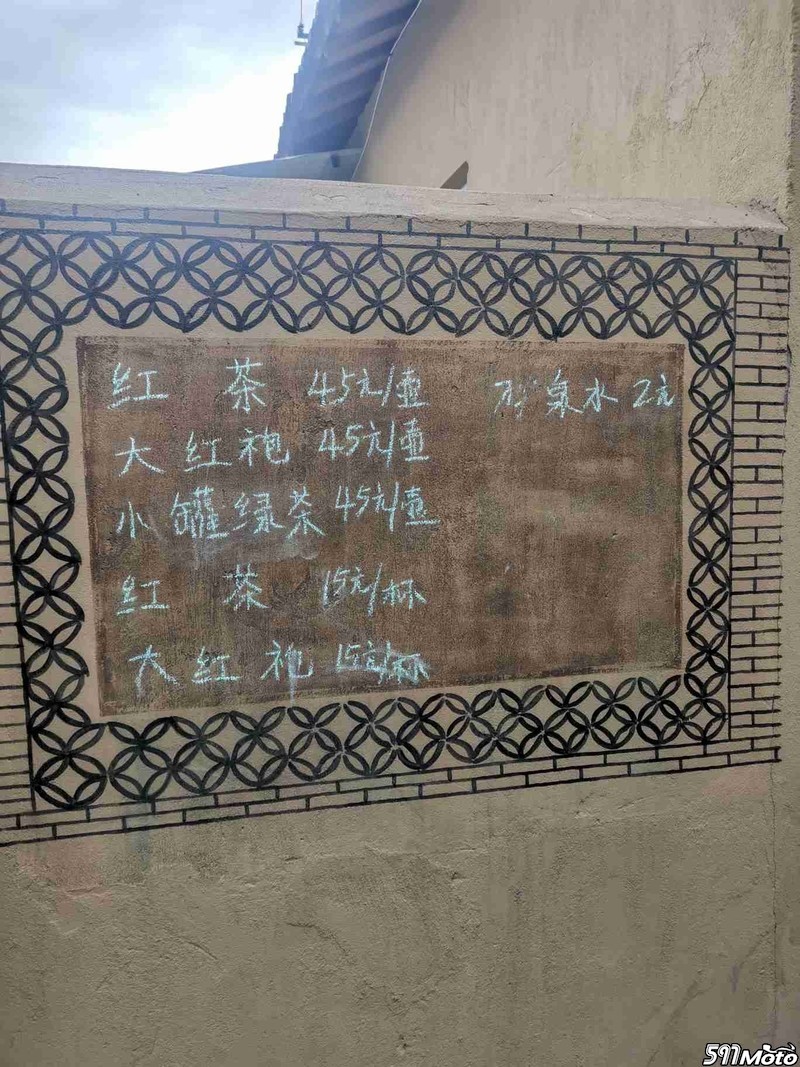 红茶 45元/壶
大红袍 45元/壶
小罐绿茶 45元/壶
红茶 15元/杯
大红袍 15元/杯
泉水 2元
591Moto